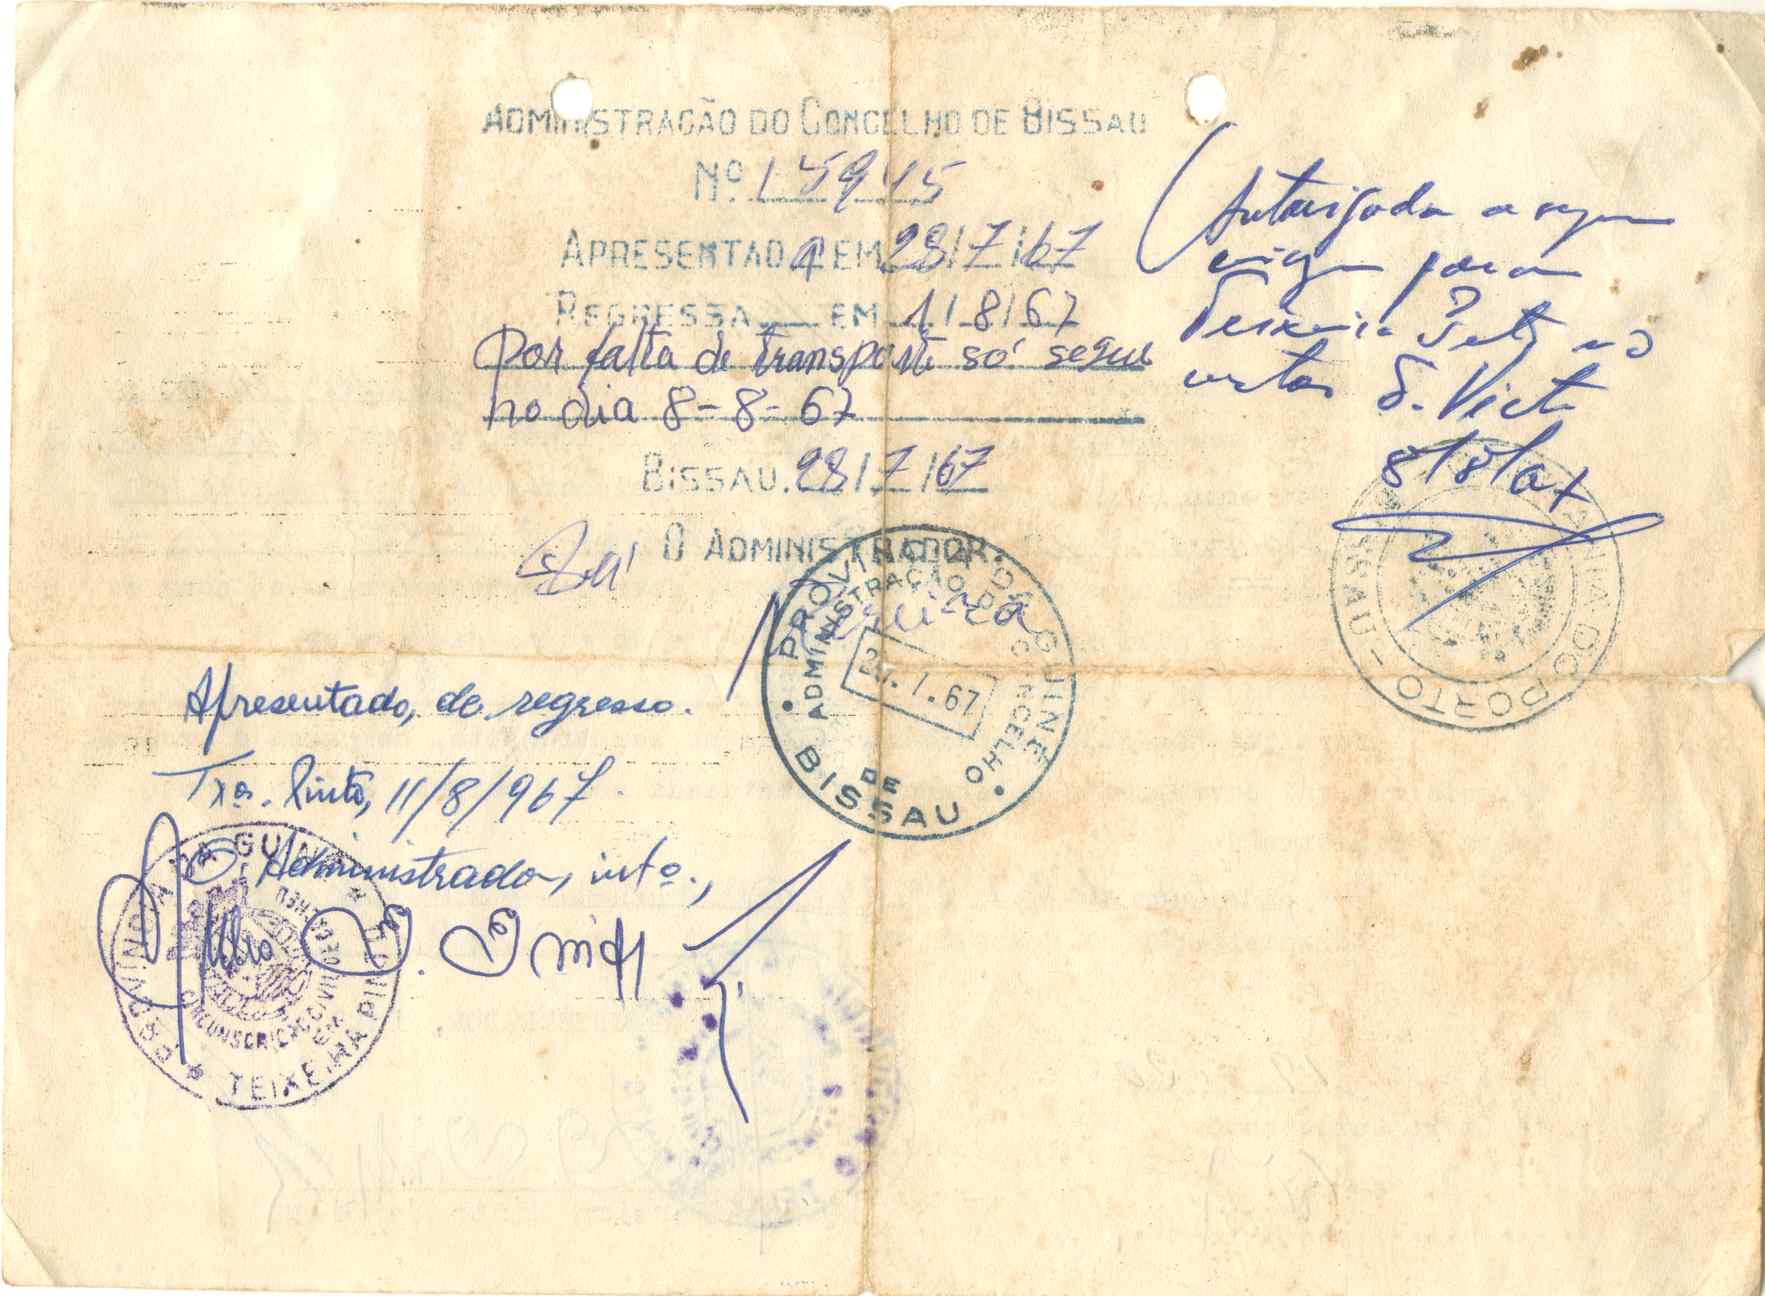 ADMINISTRAÇÃO DO CONCELHO DE BISSAU
Nº 15945
APRESENTADO EM 28/7/67
REGRESSA EM 1/8/67
Por falta de transporte só segue
no dia 8-8-67
BISSAU, 28/7/67
O ADMINISTRADOR,
PROVINCIA DA GUINÉ
ADMINISTRAÇÃO DO CONCELHO
7.67
DE
BISSAU
Autorizada a seguir
viagem para
Teixeira Pinto no
S. Vicente
8/8/67
CAPITANIA DO PORTO - BISSAU -
Apresentado, de regresso.
Txª. Pinto, 11/8/967.
O Administrador, intº.,
PROVINCIA DA GUINÉ
CIRCUNSCRIÇÃO CIVIL
TEIXEIRA PINTO